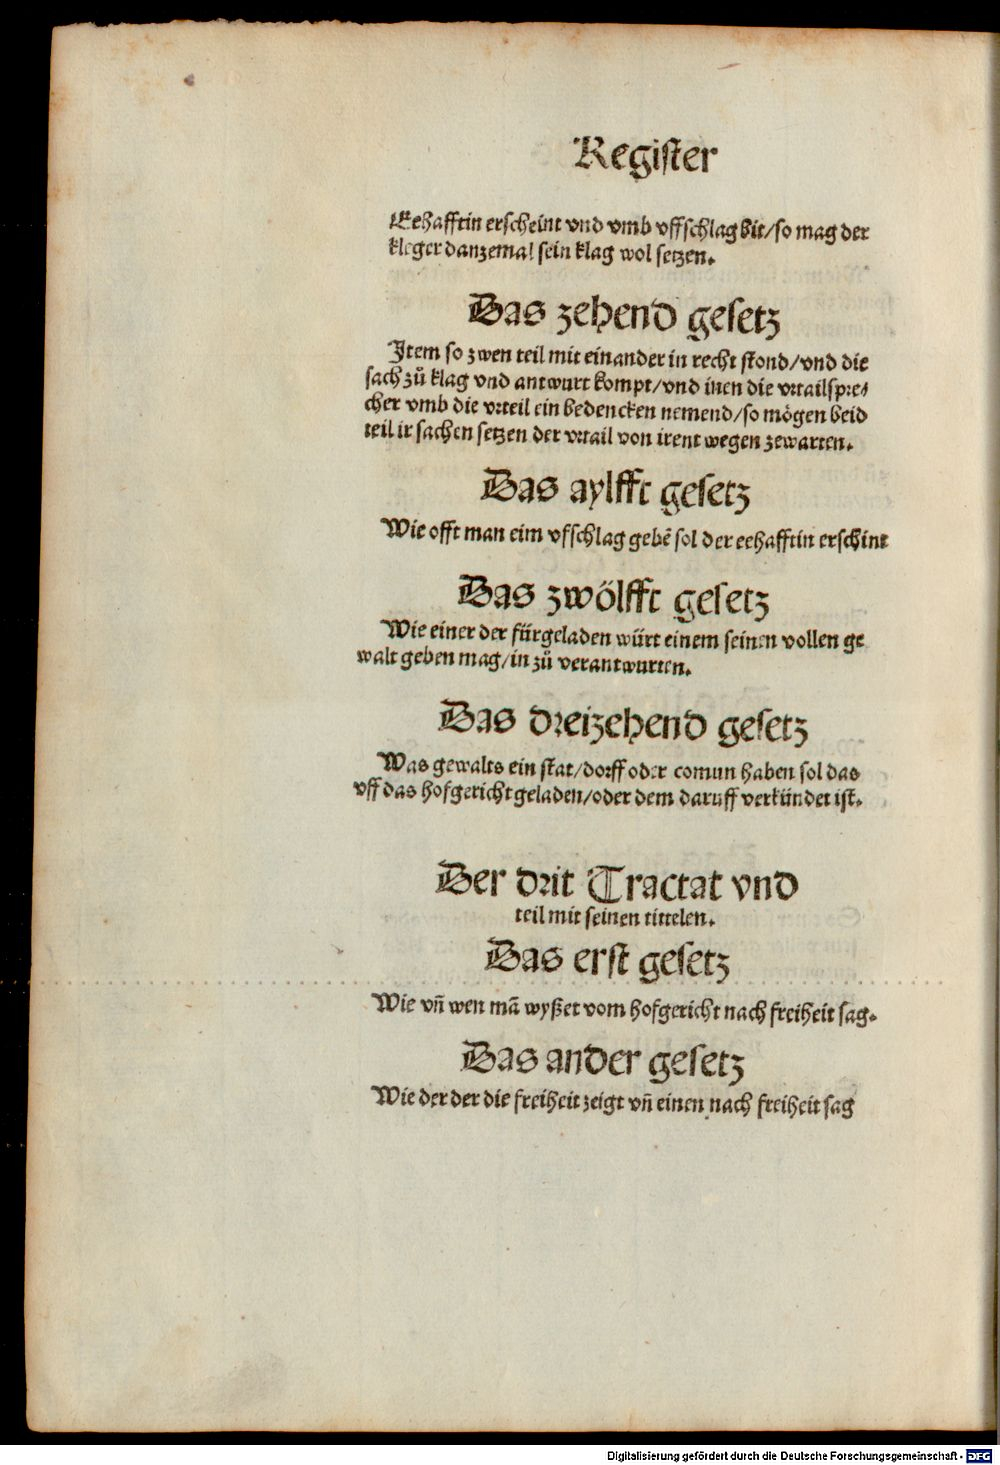 Register
Eehafftin erscheint vnd vmb vffschlag bit/so mag der
kleger danzemal sein klag wol setzen.
Das zehend gesetz
Item so zwen teil mit einander in recht stond/vnd die
sach zů klag vnd antwurt kompt/vnd inen die vrtailspre⸗
cher vmb die vrteil ein bedencken nemend/so mögen beid
teil ir sachen setzen der vrtail von irent wegen zewarten.
Das aylfft gesetz
Wie offt man eim vfschlag gebē sol der eehafftin erschint
Das zwölfft gesetz
Wie einer der fürgeladen würt einem seinen vollen ge
walt geben mag/in zů verantwurten.
Das dreizehend gesetz
Was gewalts ein stat/dorff oder comun haben sol das
vff das hofgericht geladen/oder dem daruff verkündet ist.
Der drit Tractat vnd
teil mit seinen tittelen.
Das erst gesetz
Wie vn̄ wen mā wyßet vom hofgericht nach freiheit sag.
Das ander gesetz
Wie der der die freiheit zeigt vn̄ einen nach freiheit sag
Digitalisierung gefördert durch die Deutsche Forschungsgemeinschaft - DFG